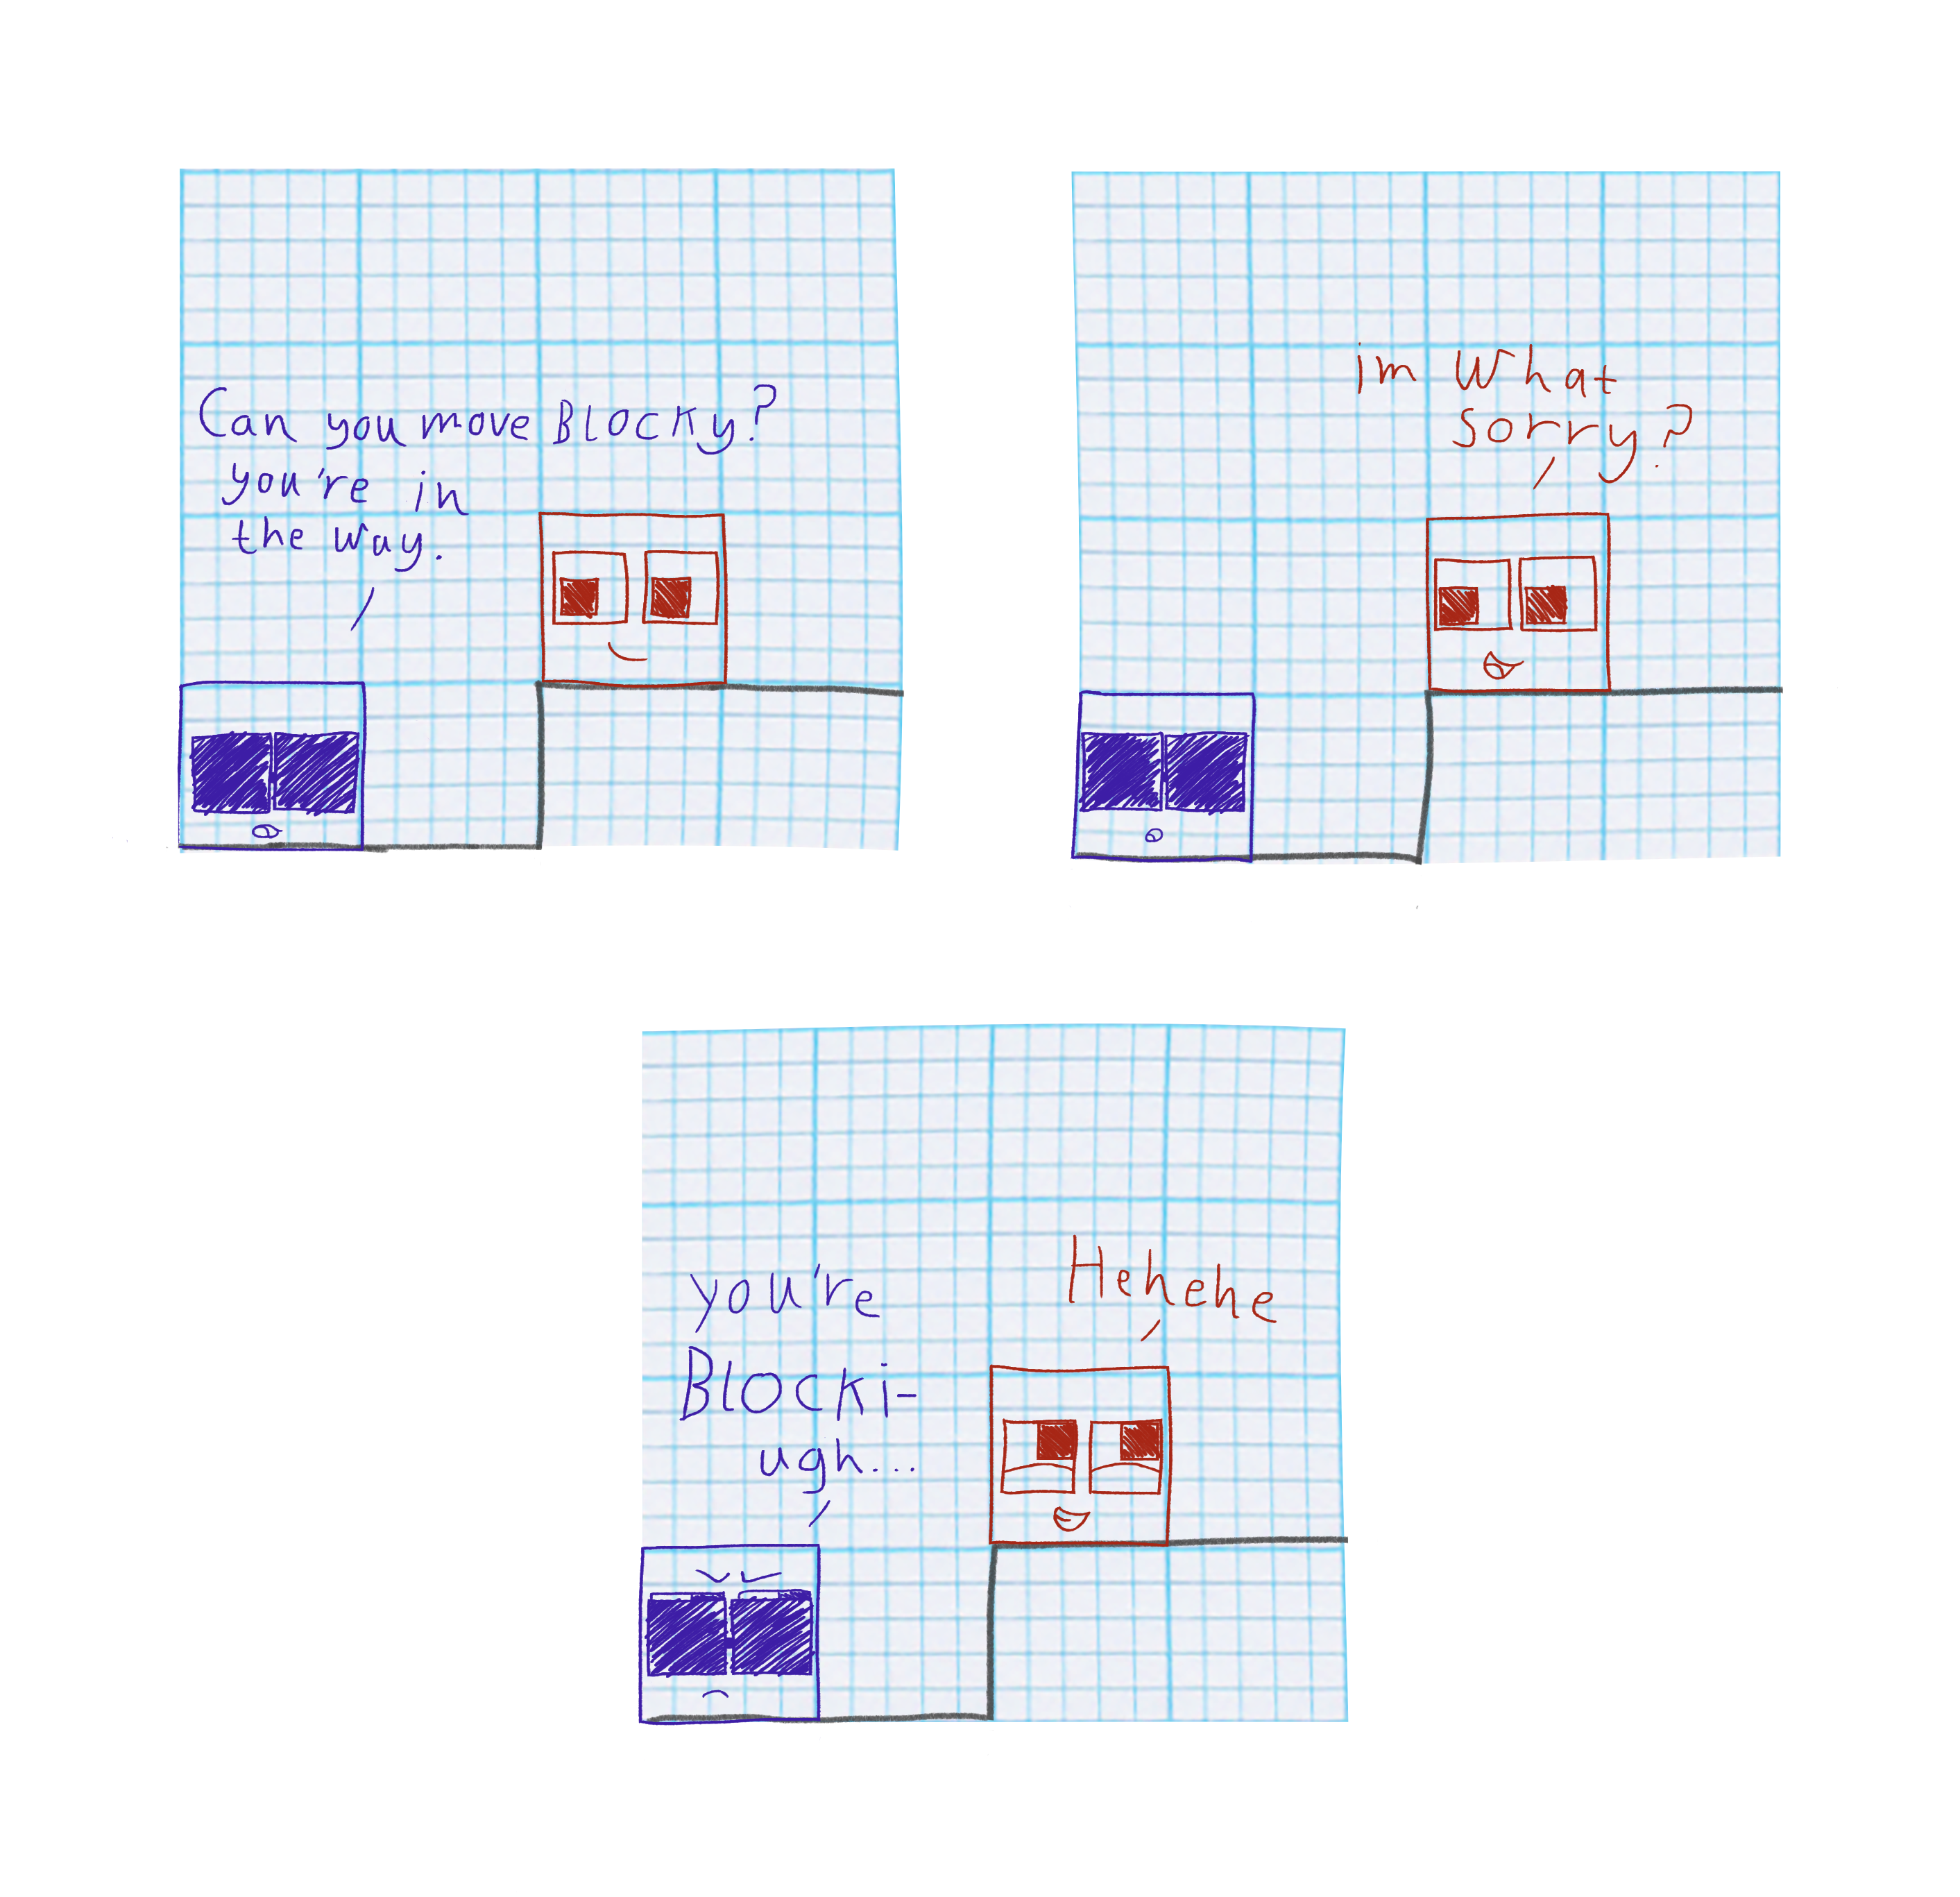 Can you move BLOCKy?
you're in
the way.
im What
sorry?
you're
BLOCKi-
ugh...
Hehehe